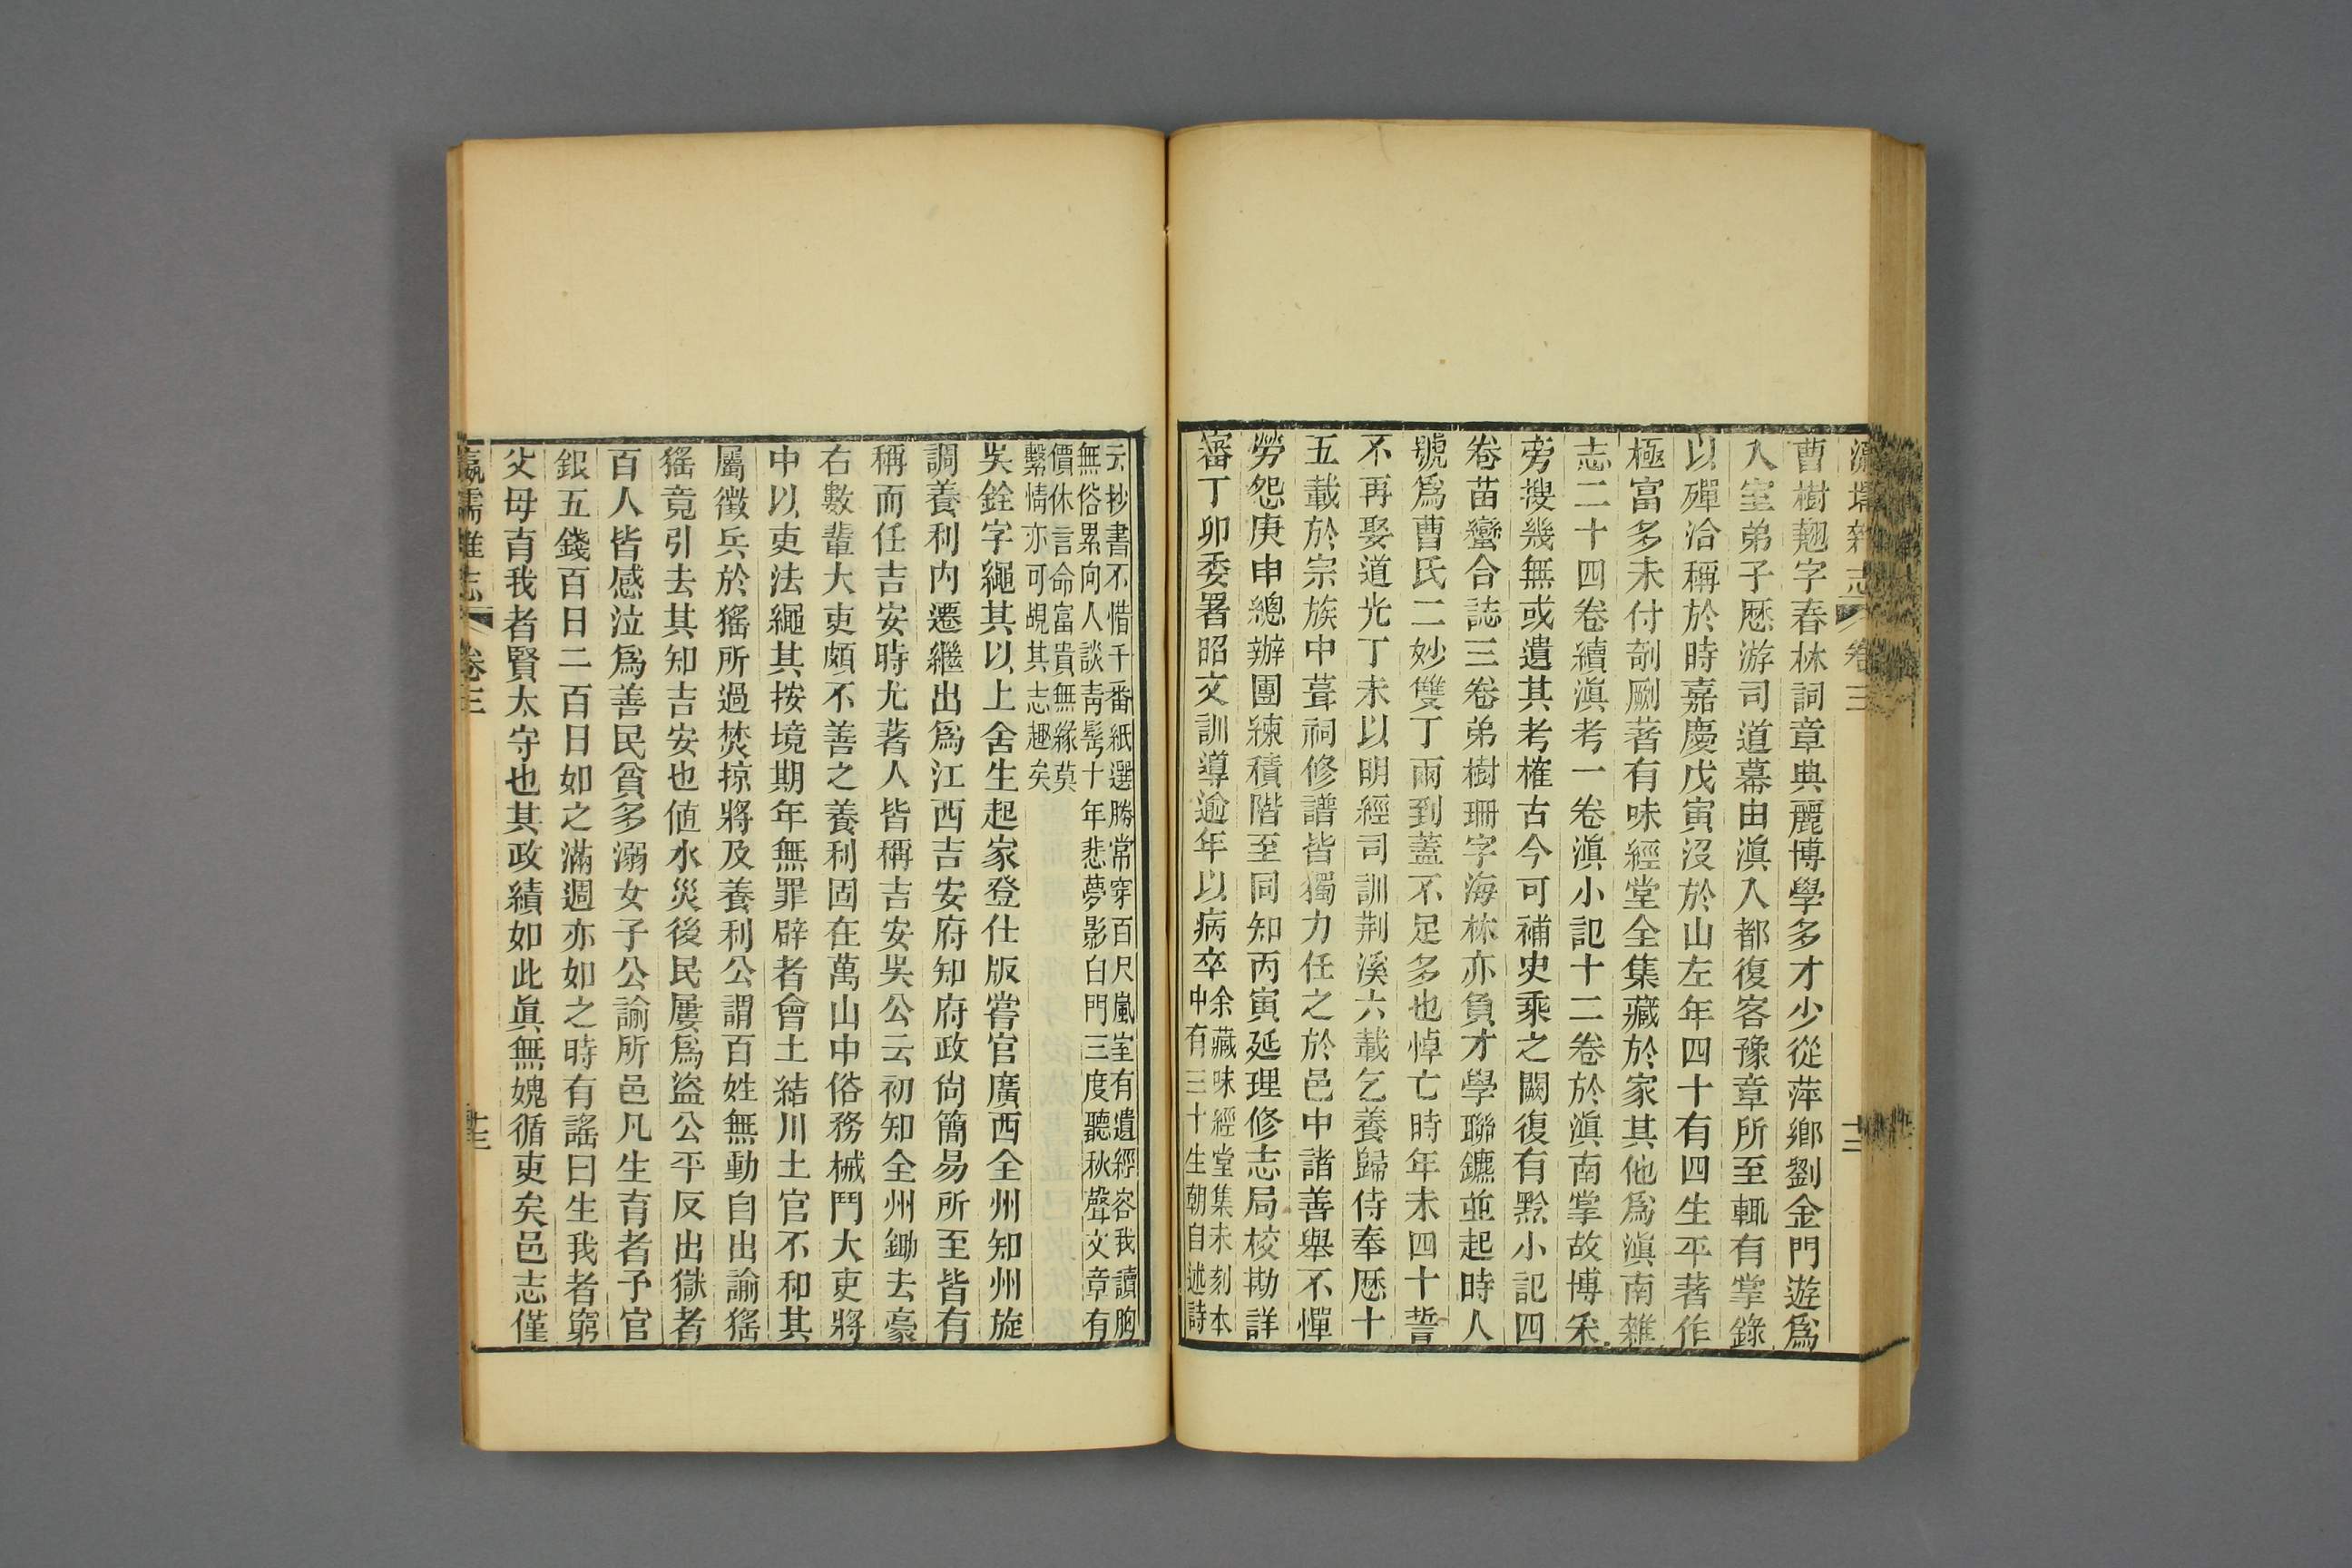 瀛壖雜志 卷三 十三
曹樹翹字春林詞章典麗博學多才少從萍鄉劉金門遊爲
入室弟子歷游司道幕由滇入都復客豫章所至輒有掌錄
以殫洽稱於時嘉慶戊寅沒於山左年四十有四生平著作
極富多未付剞劂著有味經堂全集藏於家其他爲滇南雜
志二十四卷續滇考一卷滇小記十二卷於滇南掌故博釆
旁搜幾無或遺其考榷古今可補史乘之闕復有黔小記四
卷苗蠻合誌三卷弟樹珊字海林亦負才學聯鑣並起時人
號爲曹氏二妙雙丁兩到蓋不足多也悼亡時年未四十誓
不再娶道光丁未以明經司訓荆溪六載乞養歸侍奉歷十
五載於宗族中葺祠修譜皆獨力任之於邑中諸善舉不憚
勞怨庚申總辦團練積階至同知丙寅延理修志局校勘詳
審丁卯委署昭文訓導逾年以病卒余藏味經堂集未刻本
中有三十生朝自述詩
云抄書不惜千番紙選勝常穿百尺嵐室有遺經容我讀胸
無俗累向人談靑髩十年悲夢影白門三度聽秋聲文章有
價休言命富貴無緣莫
繫情亦可覘其志趣矣
吳銓字繩其以上舍生起家登仕版嘗官廣西全州知州旋
調養利內遷繼出爲江西吉安府知府政尙簡易所至皆有
稱而任吉安時尤著人皆稱吉安吳公云初知全州鋤去豪
右數輩大吏頗不善之養利固在萬山中俗務械鬥大吏將
中以吏法繩其按境期年無罪辟者會土結川土官不和其
屬徵兵於猺所過焚掠將及養利公謂百姓無動自出諭猺
猺竟引去其知吉安也値水災後民屢爲盜公平反出獄者
百人皆感泣爲善民貧多溺女子公諭所邑凡生育者予官
銀五錢百日二百日如之滿週亦如之時有謠曰生我者窮
父母育我者賢太守也其政績如此眞無媿循吏矣邑志僅
瀛壖雜志 卷三 十三